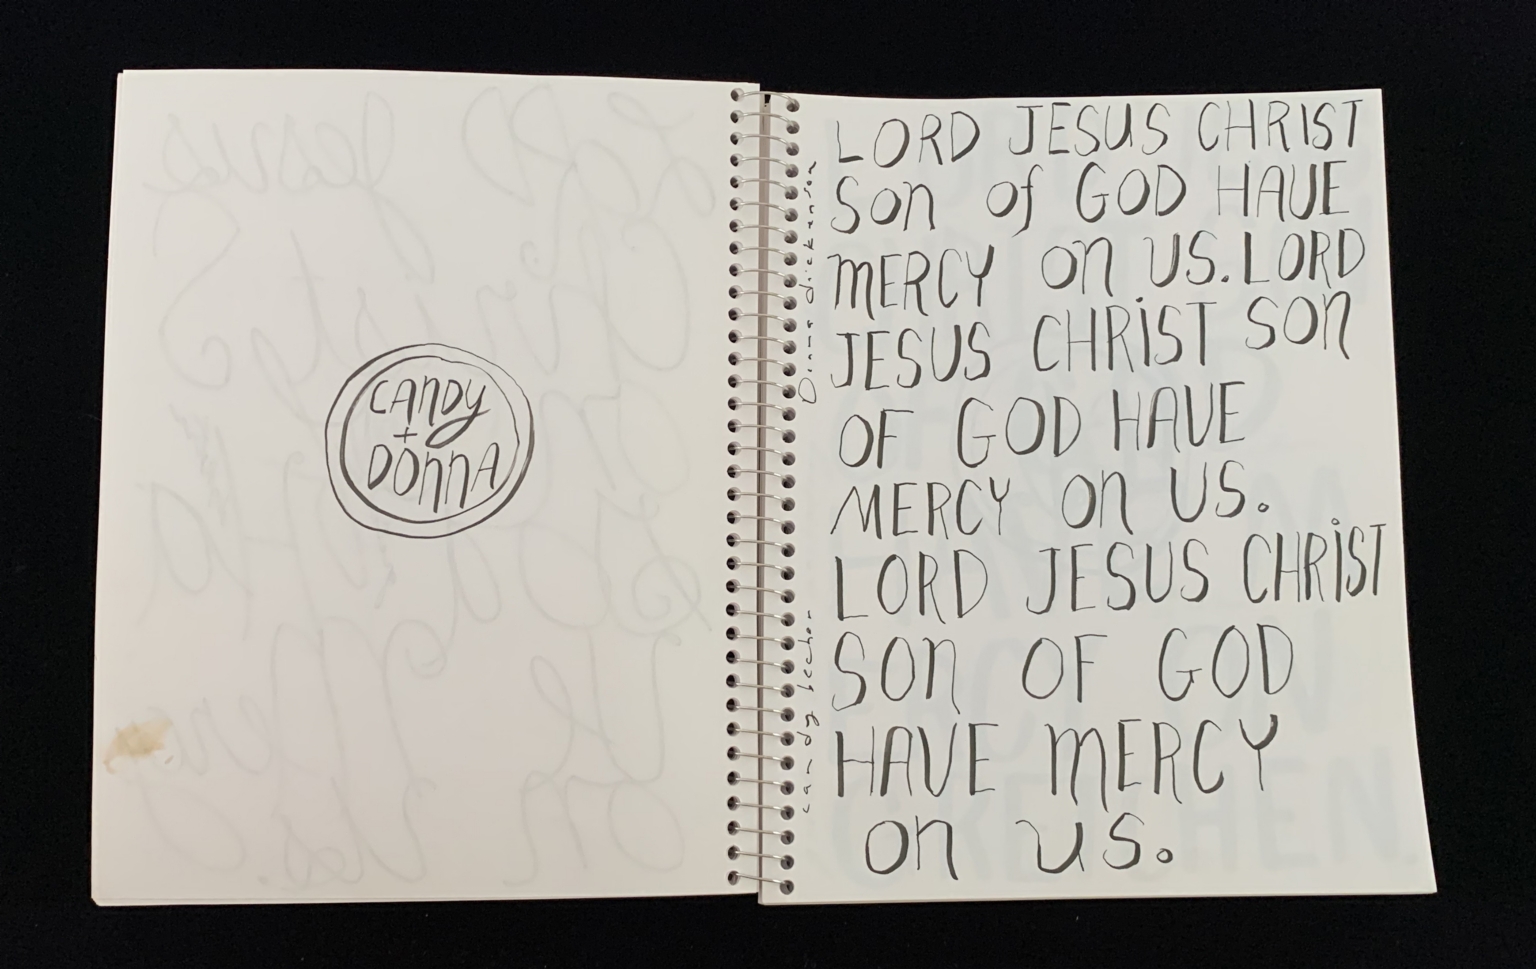 CANDY
+
DONNA
Donna dickenson
candy bechon
LORD JESUS CHRIST
SON of GOD HAVE
MERCY ON US. LORD
JESUS CHRiST SON
OF GOD HAVE
MERCY ON US.
LORD JESUS CHRiST
SON OF GOD
HAVE MERCY
ON US.